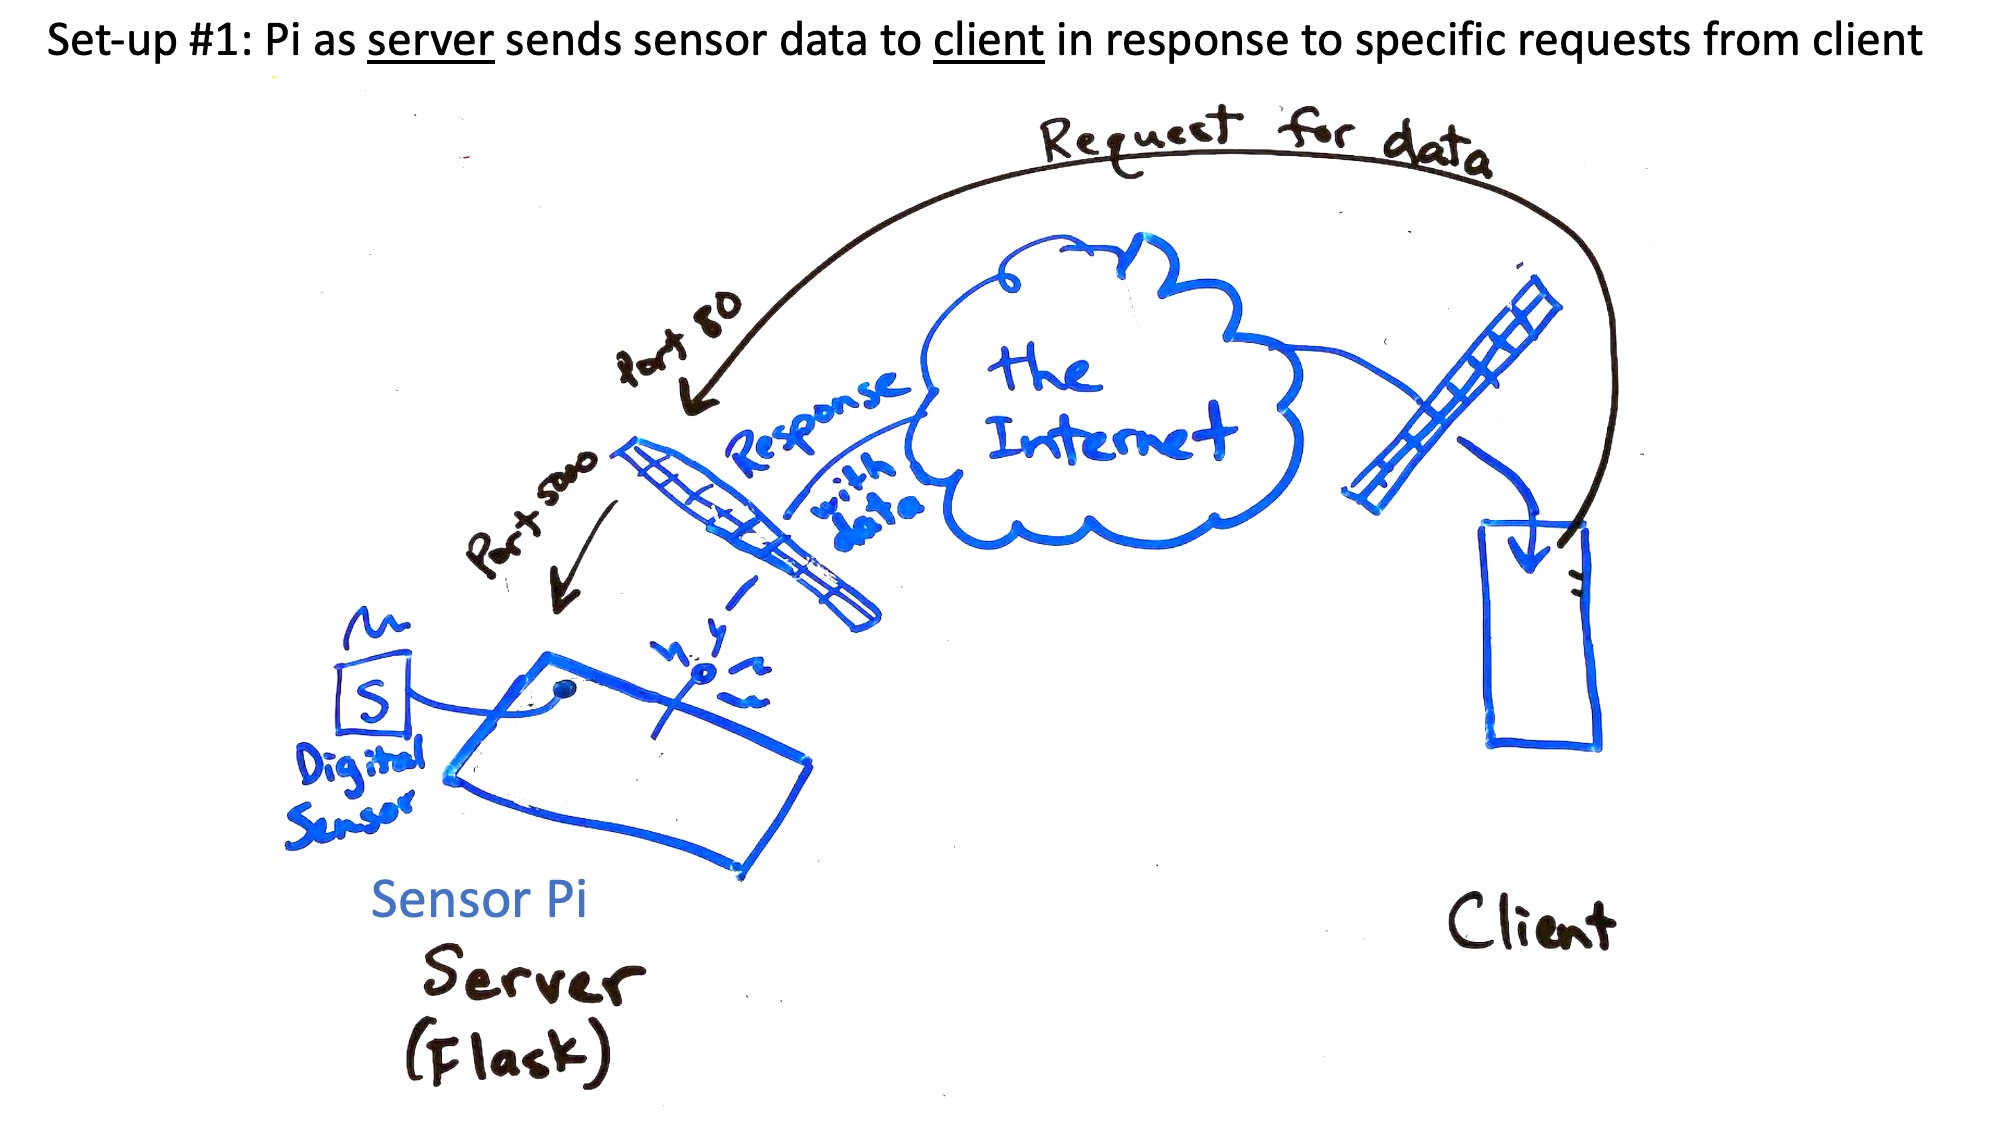 Set-up #1: Pi as server sends sensor data to client in response to specific requests from client
Request for data
Port 80
the
Internet
Response
with
data
Port 5000
S
Digital
Sensor
Sensor Pi
Server
(Flask)
Client